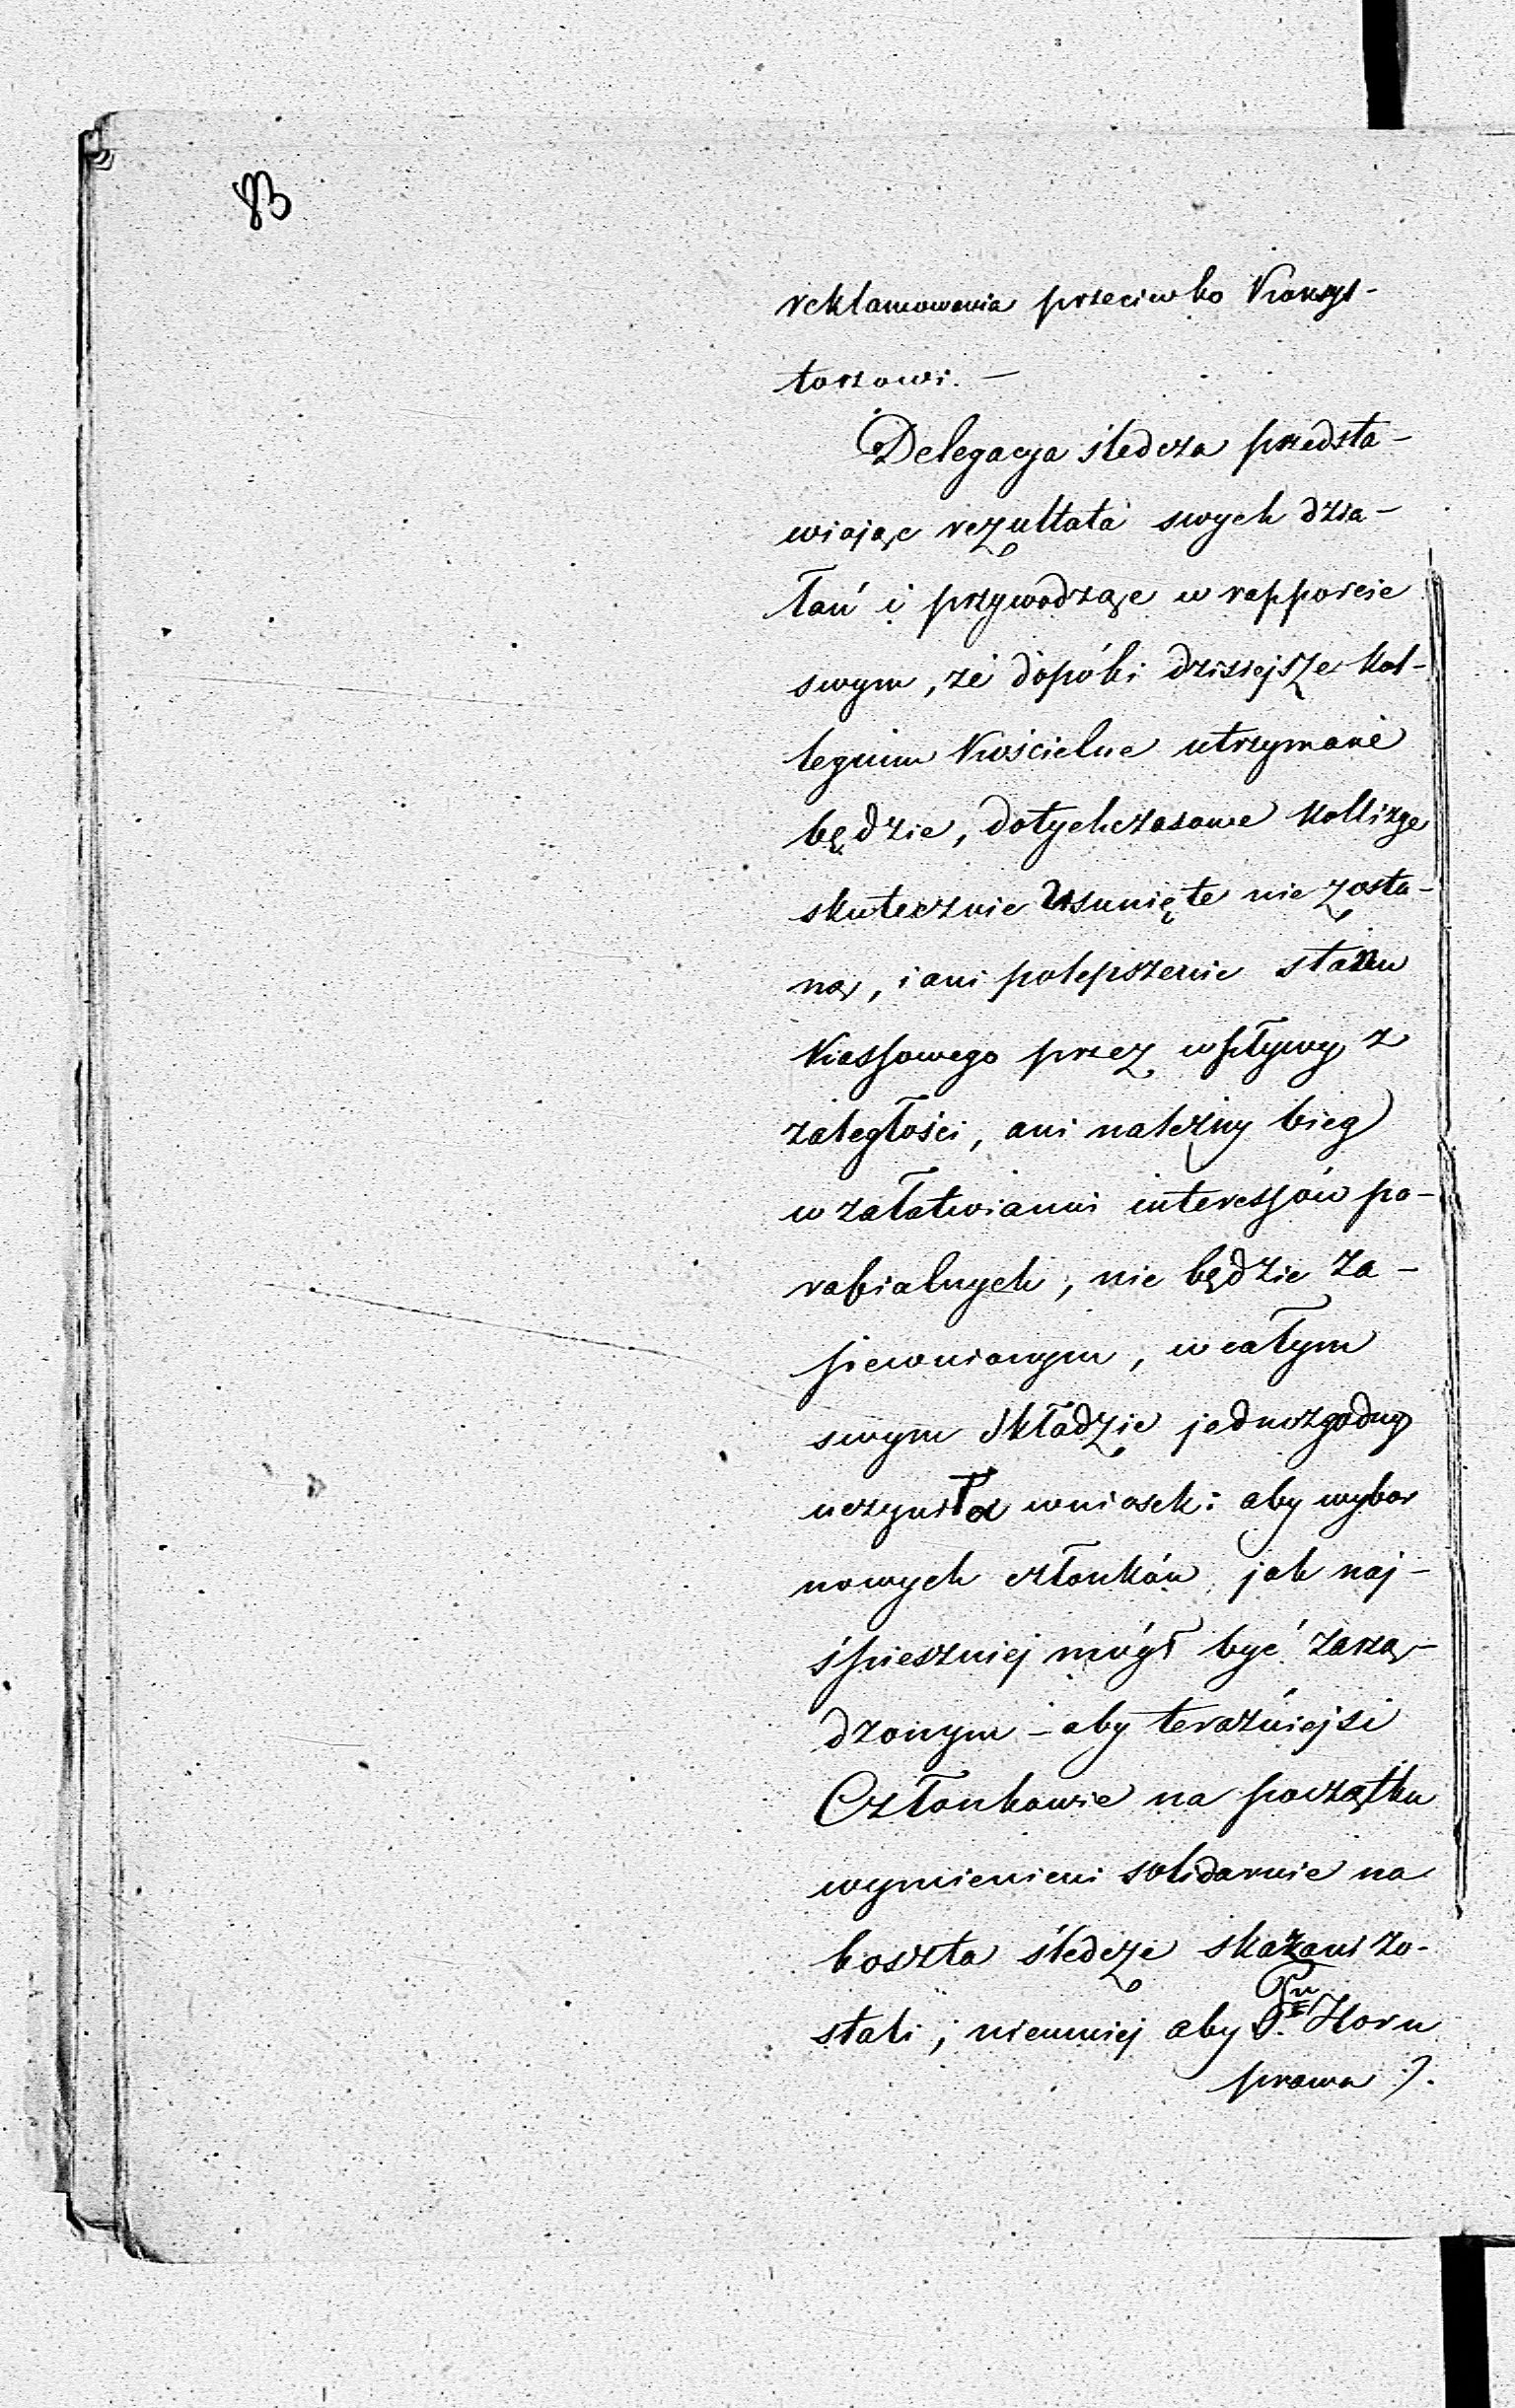 83
reklamowania przeciwko Konsys-
torzowi. —
Delegacja śledcza przedsta-
wiając rezultata swych dzia-
łań i przywodząc w rapporcie
swym, że dopóki dzisiejsze Kol-
legium Kościelne utrzymane
będzie, dotychczasowe Kollizye
skutecznie usunięte nie zosta-
ną, i ani polepszenie stanu
Kassowego przez wpływy z
zaległości, ani należny bieg
w załatwianiu interessów pa-
rafialnych, nie będzie za-
pewnionym, w całym
swym składzie jednozgodny
uczyniła wniosek: aby wybor
nowych członków jak naj-
śpieszniej mógł być zarzą-
dzonym – aby teraźniejsi
Członkowie na początku
wymienieni solidarnie na
koszta śledcze skazani zo-
stali; niemniej aby P. Horn
prawa /.